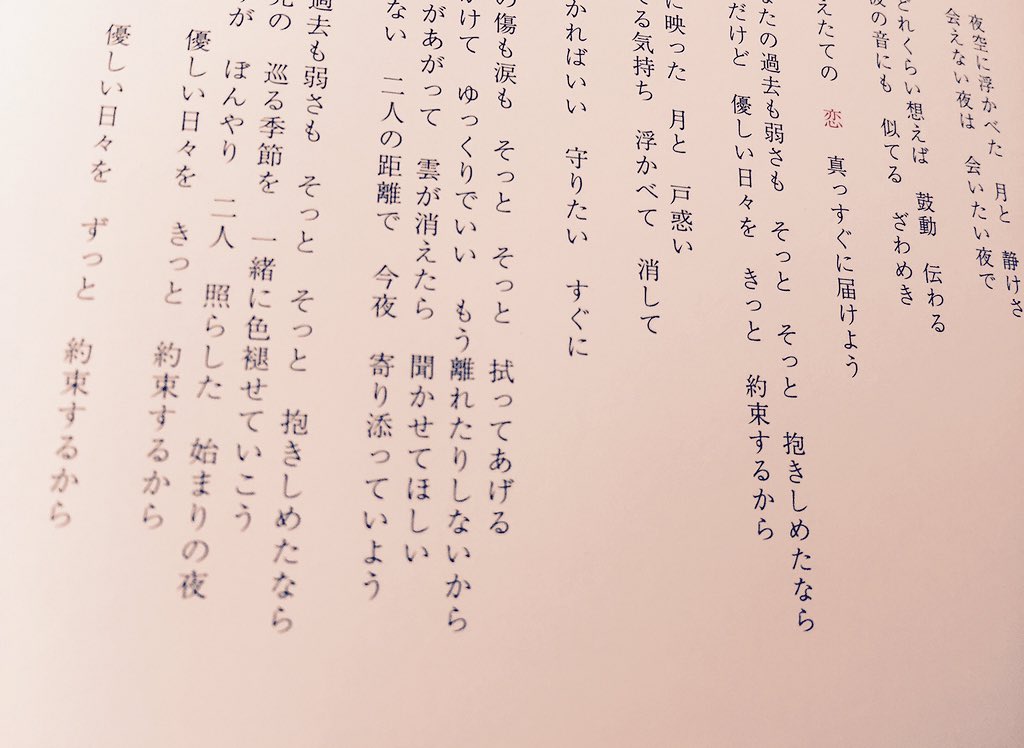 夜空に浮かべた 月と 静けさ
会えない夜は 会いたい夜で
どれくらい想えば 鼓動 伝わる
波の音にも 似てる ざわめき
えたての 恋 真っすぐに届けよう
なたの過去も弱さも そっと そっと 抱きしめたなら
だけど 優しい日々を きっと 約束するから
に映った 月と 戸惑い
る気持ち 浮かべて 消して
かればいい 守りたい すぐに
の傷も涙も そっと そっと 拭ってあげる
かけて ゆっくりでいい もう離れたりしないから
があがって 雲が消えたら 聞かせてほしい
ない 二人の距離で 今夜 寄り添っていよう
過去も弱さも そっと そっと 抱きしめたなら
の 巡る季節を 一緒に色褪せていこう
が ぼんやり 二人 照らした 始まりの夜
優しい日々を きっと 約束するから
優しい日々を ずっと 約束するから